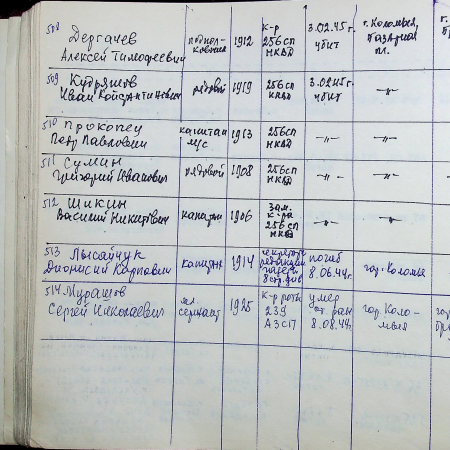 508 Дергачев Алексей Тимофеевич подпол-ковник 1912 к-р 256 сп НКВД 3.02.45 г. убит г. Коломыя, Базарная пл.
509 Кудряшов Иван Константинович рядовой 1919 256 сп НКВД 3.02.45 г. убит -"-
510 Прокопец Петр Павлович капитан м/с 1913 256 сп НКВД -"- -"-
511 Сумин Григорий Иванович рядовой 1908 256 сп НКВД -"- -"-
512 Шикин Василий Никитович капитан 1906 зам. к-ра 256 сп НКВД -"- -"-
513 Лысайчук Дионисий Карпович капитан 1914 секретарь редакции газеты 8 стр. див погиб 8.06.44 г. гор. Коломыя
514 Мурашов Сергей Николаевич мл. сержант 1925 к-р роты 239 АЗСП умер от ран 8.08.44 г. гор. Коло-мыя